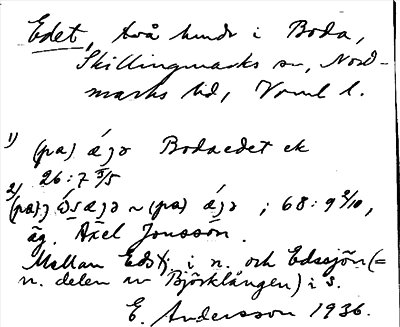 Edet, två hmdr i Boda,
Skillingmarks sn, Nord-
marks hd, Vrml l.
1) (pa) ájə Bodaedet ek
26:7 3/5
2) (pa) ájə ~ (pa) ájə ; 68:9 2/10,
äg. Axel Jonsson.
Mellan Edstj. i n. och Edssjön (=
n. delen av Björklången) i s.
E. Andersson 1936.